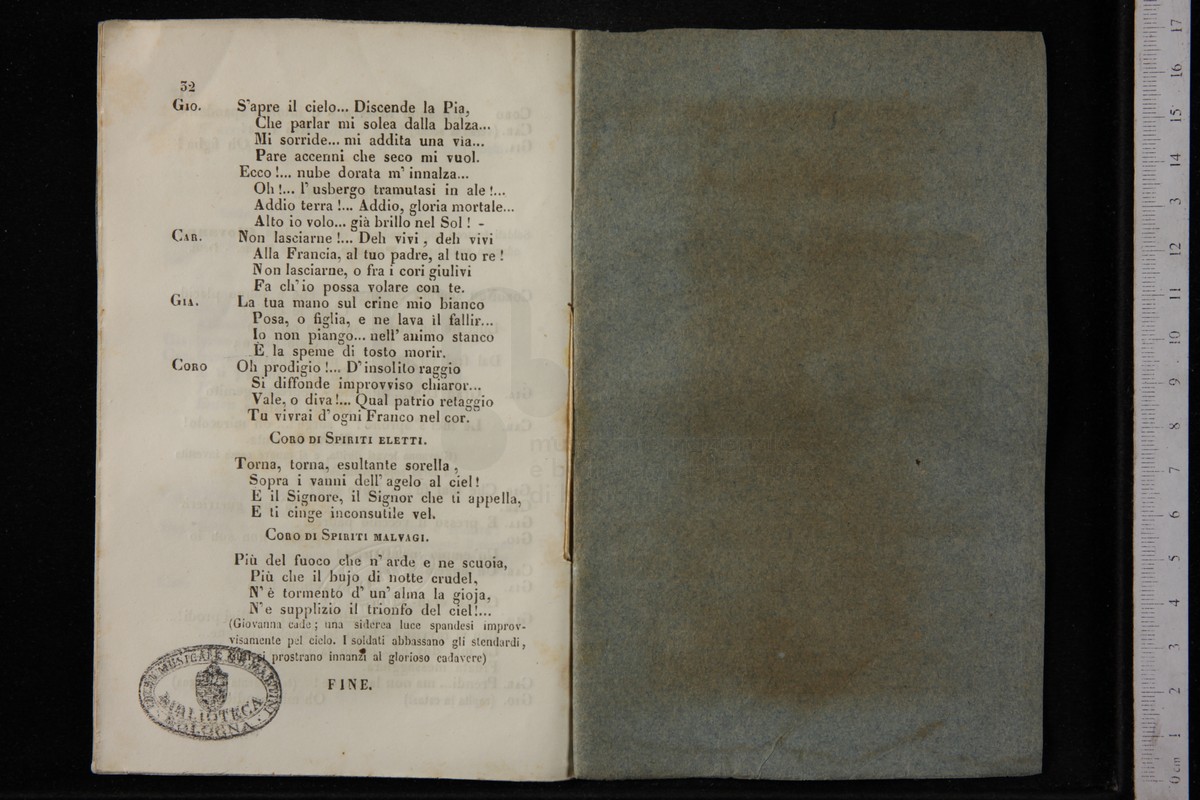 32
Gio. S'apre il cielo... Discende la Pia,
Che parlar mi solea dalla balza...
Mi sorride... mi addita una via...
Pare accenni che seco mi vuol.
Ecco!... nube dorata m' innalza...
Oh!... l' usbergo tramutasi in ale!...
Addio terra!... Addio, gloria mortale...
Alto io volo... già brillo nel Sol! -
Car. Non lasciarne!... Deh vivi, deh vivi
Alla Francia, al tuo padre, al tuo re!
Non lasciarne, o fra i cori giulivi
Fa ch' io possa volare con te.
Gia. La tua mano sul crine mio bianco
Posa, o figlia, e ne lava il fallir...
Io non piango... nell' animo stanco
È la speme di tosto morir.
Coro Oh prodigio!... D' insolito raggio
Si diffonde improvviso chiaror...
Vale, o diva!... Qual patrio retaggio
Tu vivrai d' ogni Franco nel cor.
Coro di Spiriti eletti.
Torna, torna, esultante sorella,
Sopra i vanni dell' agelo al ciel!
E il Signore, il Signor che ti appella,
E ti cinge inconsutile vel.
Coro di Spiriti malvagi.
Più del fuoco che n' arde e ne scuoia,
Più che il bujo di notte crudel,
N' è tormento d' un' alma la gioja,
N' e supplizio il trionfo del ciel!...
(Giovanna cade; una siderea luce spandesi improv-
visamente pel cielo. I soldati abbassano gli stendardi,
si prostrano innanzi al glorioso cadavere)
FINE.
MUSICALE
MARTINI
BIBLIOTECA
BOLOGNA
0 cm 1 2 3 4 5 6 7 8 9 10 11 12 13 14 15 16 17